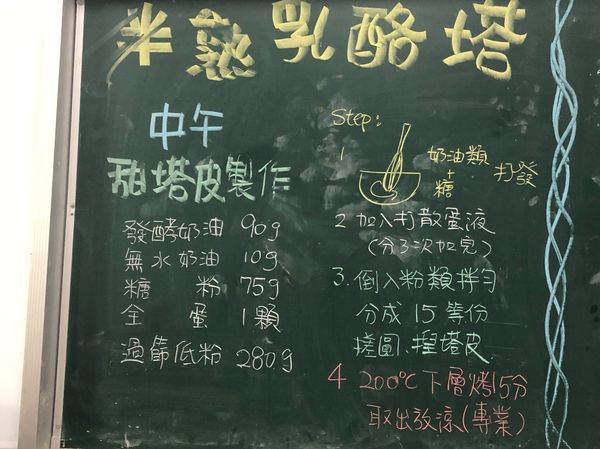 半熟乳酪塔
中午
甜塔皮製作
發酵奶油 90g
無水奶油 10g
糖粉 75g
全蛋 1顆
過篩低粉 280g
Step:
1
奶油類
+
糖
打發
2 加入打散蛋液
(分3次加完)
3. 倒入粉類拌勻
分成 15 等份
搓圓.捏塔皮
4 200℃下層烤15分
取出放涼(專業)